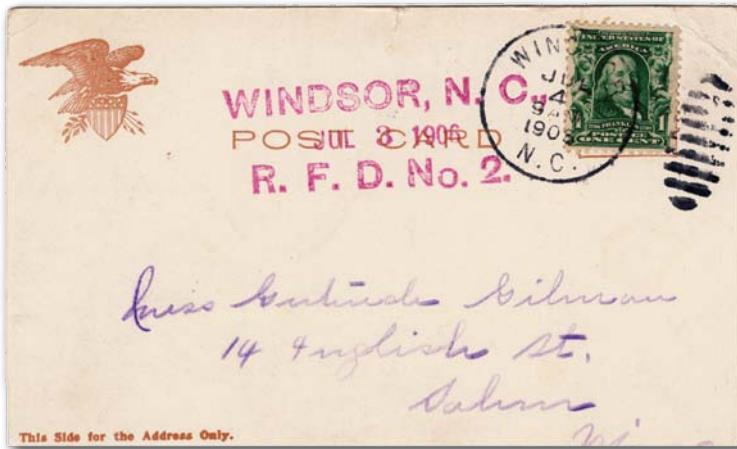 WINDSOR, N. C.,
POST CARD
JUL 3 1906
R. F. D. No. 2.
WIND
JUL
4
9 AM
1906
N. C.
UNITED STATES OF
AMERICA
FRANKLIN
1 POSTAGE 1
ONE CENT
Miss Gertrude Gilman
14 English St.
Salem
This Side for the Address Only.